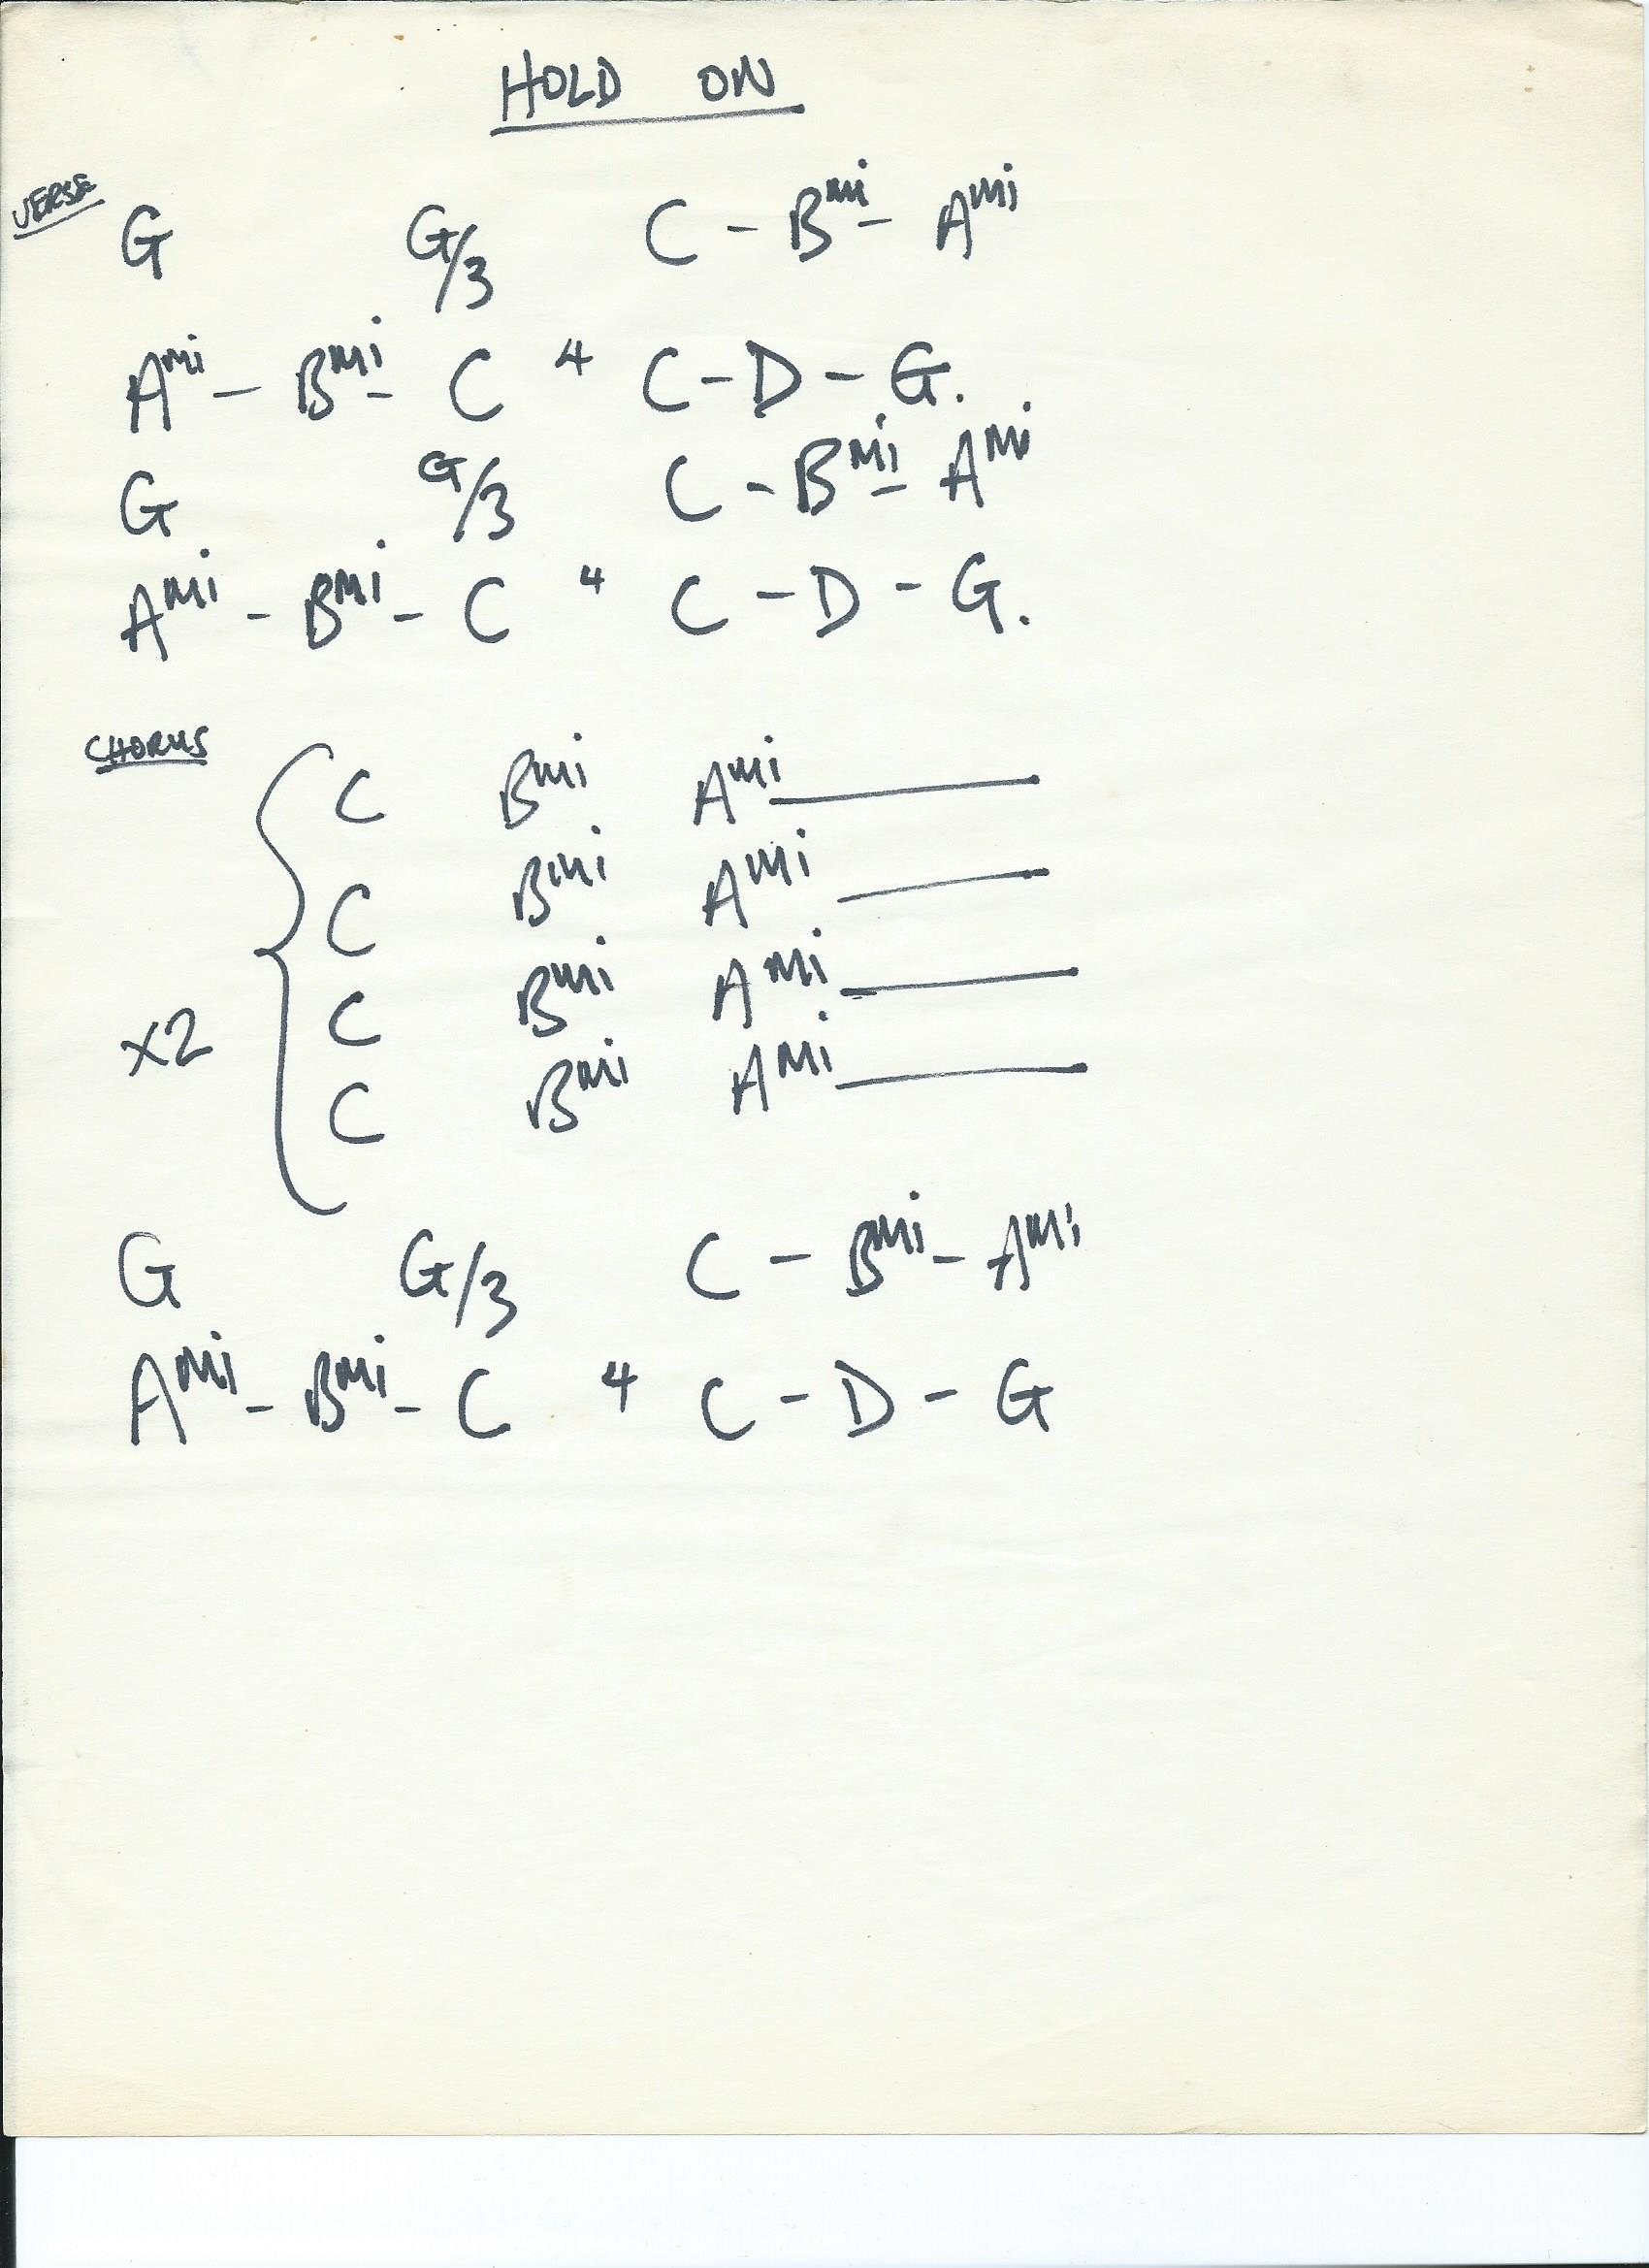 HOLD ON
VERSE
G G/3 C - Bmi - Ami
Ami - Bmi - C 4 C - D - G.
G G/3 C - Bmi - Ami
Ami - Bmi - C 4 C - D - G.
CHORUS
C Bmi Ami
C Bmi Ami
C Bmi Ami
x2
C Bmi Ami
G G/3 C - Bmi - Ami
Ami - Bmi - C 4 C - D - G